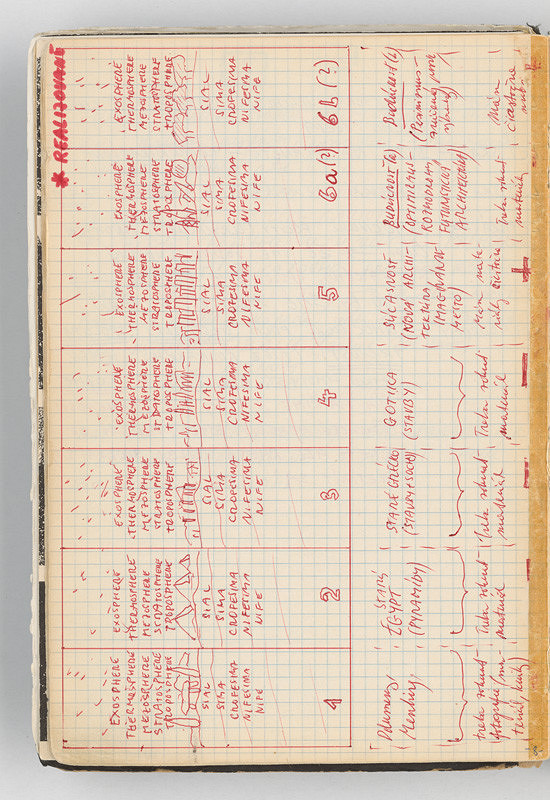 * REALIZOVANÉ
EXOSPHERE
THERMOSPHERE
MEZOSPHERE
STRATOSPHERE
TROPOSPHERE
SIAL
SIMA
CROFESIMA
NIFESIMA
NIFE
1
Dolmeny,
Menhiry,
treba zohnať
fotografie
EXOSPHERE
THERMOSPHERE
MEZOSPHERE
STRATOSPHERE
TROPOSPHERE
SIAL
SIMA
CROFESIMA
NIFESIMA
NIFE
2
STARÝ
EGYPT
(PYRAMÍDY)
Treba zohnať
materiál
EXOSPHERE
THERMOSPHERE
MEZOSPHERE
STRATOSPHERE
TROPOSPHERE
SIAL
SIMA
CROFESIMA
NIFESIMA
NIFE
3
STARÉ GRÉCKO
(STAVBY + SOCHY)
Treba zohnať
materiál
EXOSPHERE
THERMOSPHERE
MEZOSPHERE
STRATOSPHERE
TROPOSPHERE
SIAL
SIMA
CROFESIMA
NIFESIMA
NIFE
4
GOTIKA
(STAVBY)
Treba zohnať
materiál
EXOSPHERE
THERMOSPHERE
MEZOSPHERE
STRATOSPHERE
TROPOSPHERE
SIAL
SIMA
CROFESIMA
NIFESIMA
NIFE
5
SÚČASNOSŤ
(NOVÁ ARCHI-
TEKTÚRA,
IMAGINÁRNE
MESTO)
Mám mate-
EXOSPHERE
THERMOSPHERE
MEZOSPHERE
STRATOSPHERE
TROPOSPHERE
SIAL
SIMA
CROFESIMA
NIFESIMA
NIFE
6a (?)
BUDÚCNOSŤ (a)
(OPTIMIZMUS-
FUTURISTICKÁ
ARCHITEKTÚRA)
Treba zohnať
materiál
EXOSPHERE
THERMOSPHERE
MEZOSPHERE
STRATOSPHERE
TROPOSPHERE
SIAL
SIMA
CROFESIMA
NIFESIMA
NIFE
6b (?)
Budúcnosť (b)
(Pesimizmus-
Mám
čiastočne